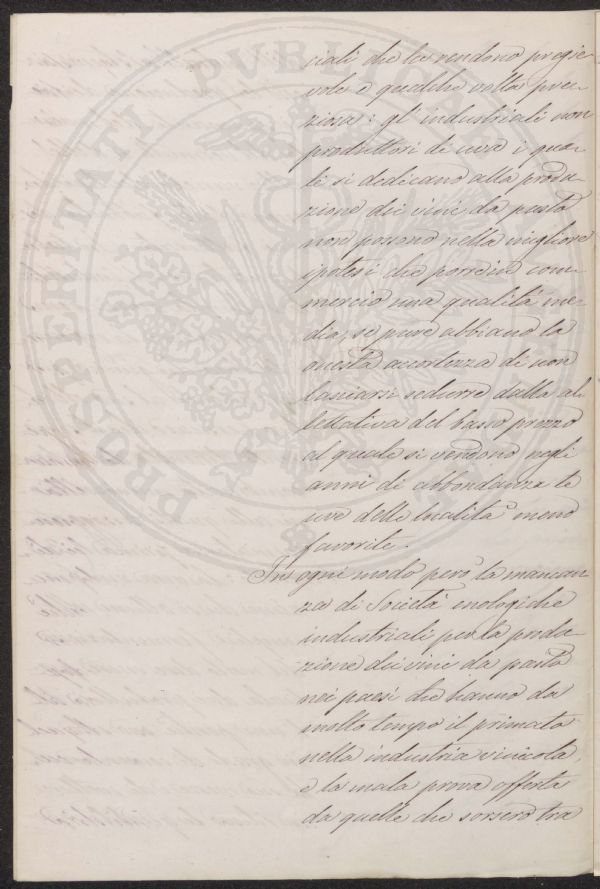 ciali che la rendono pregie
vole e qualche volta pre
ziosa: gl'industriali non
produttori di uva i qua-
li si dedicano alla produ
zione dei vini da pasto
non possono nella migliore
ipotesi che porre in com
mercio una qualità me
dia, se pure abbiano la
onesta accortezza di non
lasciarsi sedurre dalla al
lettativa del basso prezzo
al quale si vendono negli
anni di abbondanza le
uve delle località meno
favorite.
In ogni modo però la mancan
za di Società enologiche
industriali per la produ-
zione dei vini da pasto
nei paesi che hanno da
molto tempo il primato
nella industria vinicola,
e la mala prova offerta
da quelle che sorsero tra
PROSPERITATI PUBLICAE